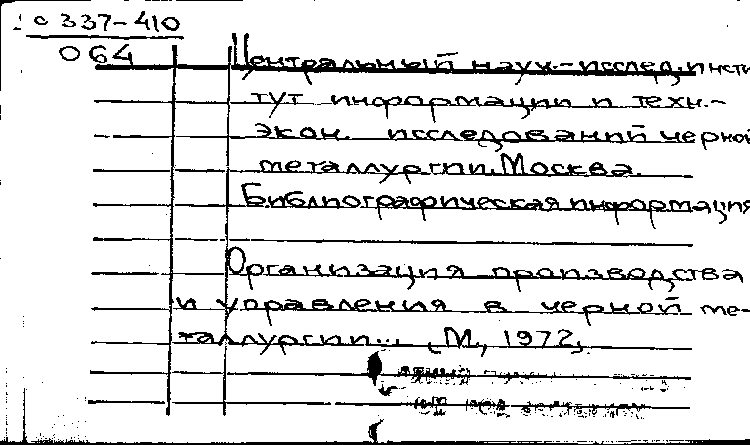 с 337-410
064
Центральный науч.-исслед. инсти
тут информации и техн.-
экон. исследований черной
металлургии. Москва.
Библиографическая информация
Организация производства
и управления в черной ме-
таллургии... , М., 1972,